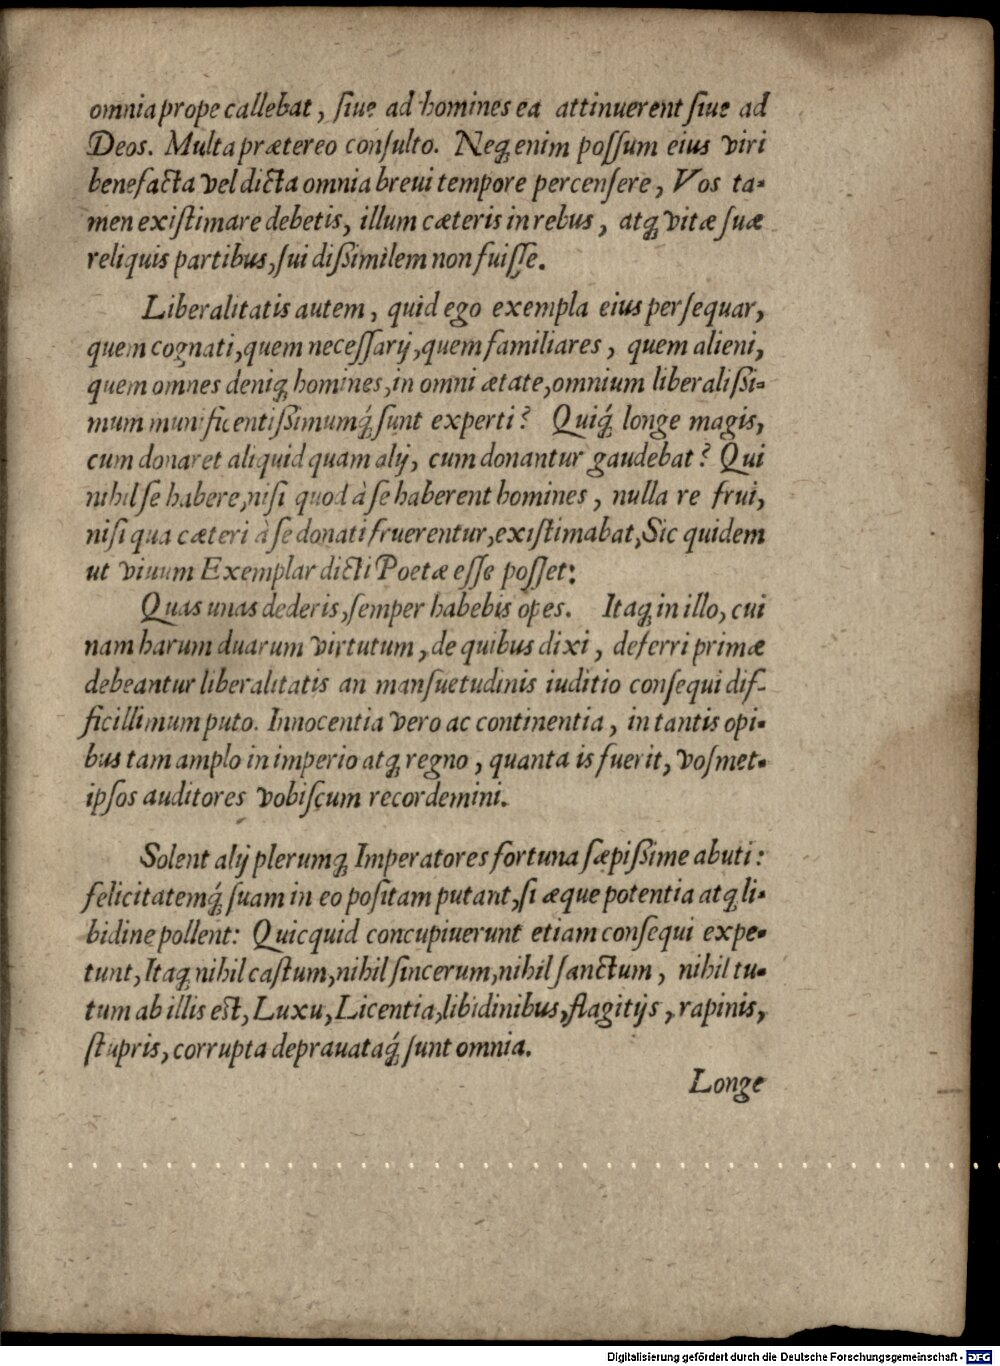 omnia prope callebat, ſiue ad homines ea attinuerent ſiue ad
Deos. Multa prætereo conſulto. Neq; enim poſſum eius viri
benefacta vel dicta omnia breui tempore percenſere, Vos ta-
men exiſtimare debetis, illum cæteris in rebus, atq; vitæ ſuæ
reliquis partibus, ſui dißimilem non fuiſſe.
Liberalitatis autem, quid ego exempla eius perſequar,
quem cognati, quem neceſſarij, quem familiares, quem alieni,
quem omnes deniq; homines, in omni ætate, omnium liberalißi-
mum munificentißimumq́; ſunt experti? Quiq́; longe magis,
cum donaret aliquid quam alij, cum donantur gaudebat? Qui
nihil ſe habere, niſi quod à ſe haberent homines, nulla re frui,
niſi qua cæteri à ſe donati fruerentur, exiſtimabat, Sic quidem
ut viuum Exemplar dicti Poetæ eſſe poſſet:
Quas unas dederis, ſemper habebis opes. Itaq; in illo, cui
nam harum duarum virtutum, de quibus dixi, deferri primæ
debeantur liberalitatis an manſuetudinis iuditio conſequi dif-
ficillimum puto. Innocentia vero ac continentia, in tantis opi-
bus tam amplo in imperio atq; regno, quanta is fuerit, voſmet-
ipſos auditores vobiſcum recordemini.
Solent alij plerumq; Imperatores fortuna ſæpißime abuti:
felicitatemq́; ſuam in eo poſitam putant, ſi æque potentia atq; li-
bidine pollent: Quicquid concupiuerunt etiam conſequi expe-
tunt, Itaq; nihil caſtum, nihil ſincerum, nihil ſanctum, nihil tu-
tum ab illis eſt, Luxu, Licentia, libidinibus, flagitijs, rapinis,
ſtupris, corrupta deprauataq́; ſunt omnia.
Longe
Digitalisierung gefördert durch die Deutsche Forschungsgemeinschaft - DFG